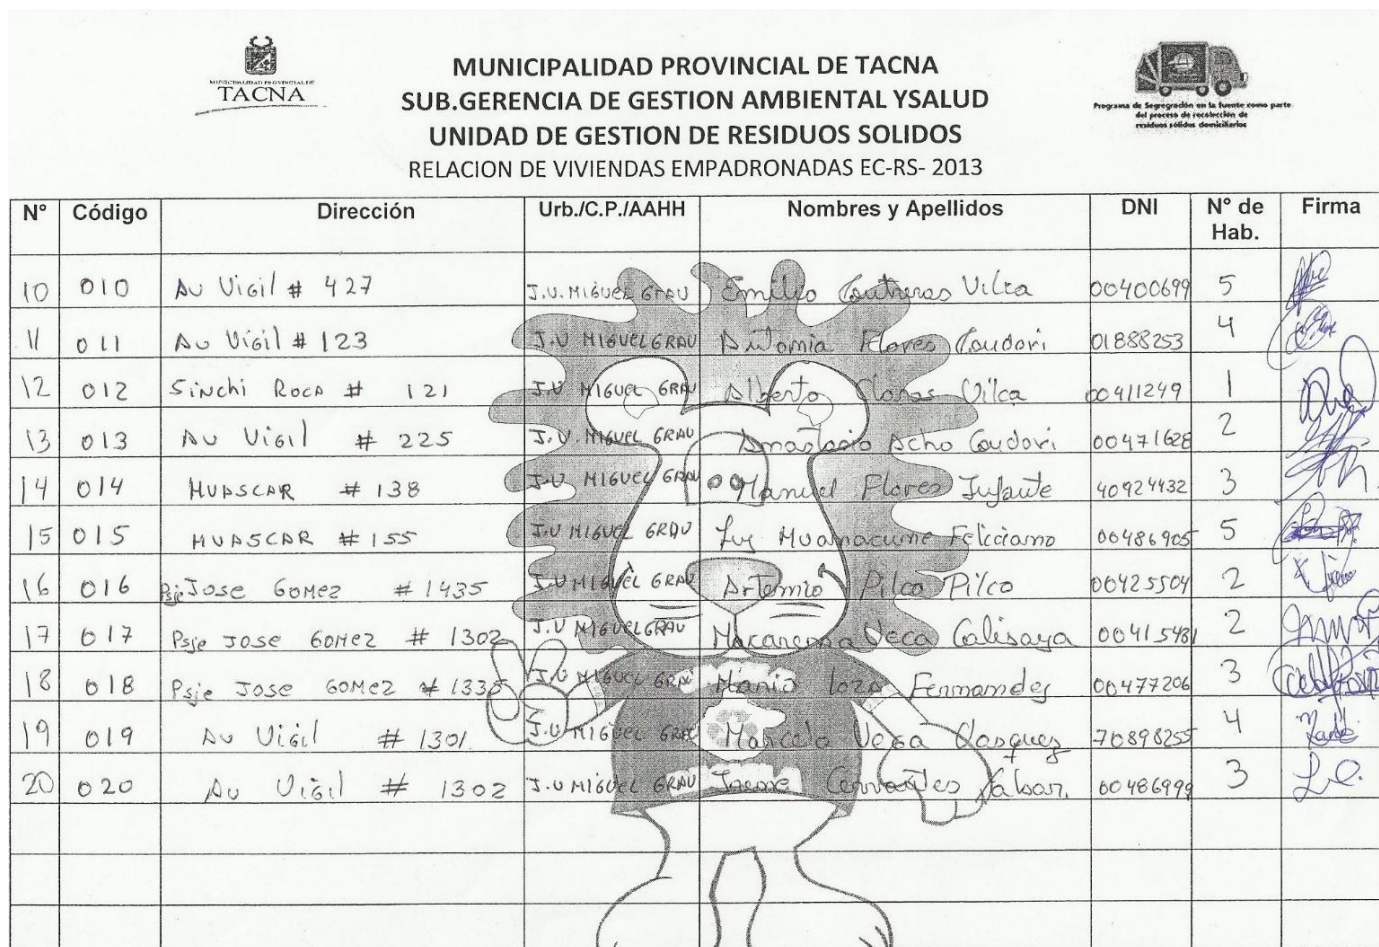 MUNICIPALIDAD PROVINCIAL DE
TACNA
MUNICIPALIDAD PROVINCIAL DE TACNA
SUB.GERENCIA DE GESTION AMBIENTAL YSALUD
UNIDAD DE GESTION DE RESIDUOS SOLIDOS
RELACION DE VIVIENDAS EMPADRONADAS EC-RS- 2013
Programa de Segregración en la fuente como parte
del proceso de recolección de
residuos sólidos domiciliarios
N° Código Dirección Urb./C.P./AAHH Nombres y Apellidos DNI N° de Hab. Firma
10 010 Av Vigil # 427 J.V. MIGUEL GRAU Emilio Contreras Vilca 00400699 5
11 011 Av Vigil # 123 J.V MIGUEL GRAU Antonia Flores Condori 01888253 4
12 012 Sinchi Roca # 121 J.V MIGUEL GRAU Alberto Vilca 00411249 1
13 013 Av Vigil # 225 J.V. MIGUEL GRAU Anastacio Acho Condori 00471628 2
14 014 HUASCAR # 138 J.V MIGUEL GRAU Manuel Flores Infante 40924432 3
15 015 HUASCAR # 155 J.V MIGUEL GRAU Feliciano 00486905 5
16 016 Psje JOSE GOMEZ # 1435 J.V MIGUEL GRAU Artemio Pilco Pilco 00425504 2
17 017 Psje JOSE GOMEZ # 1302 J.V MIGUEL GRAU Macarena Calisaya 00415481 2
18 018 Psje JOSE GOMEZ # 1335 J.V MIGUEL GRAU Maria loza Fernandez 00477206 3
19 019 Av Vigil # 1301 J.V MIGUEL GRAU Marcelo Vega Vasquez 70898255 4
20 020 Av Vigil # 1302 J.V MIGUEL GRAU Cervantes 00486999 3